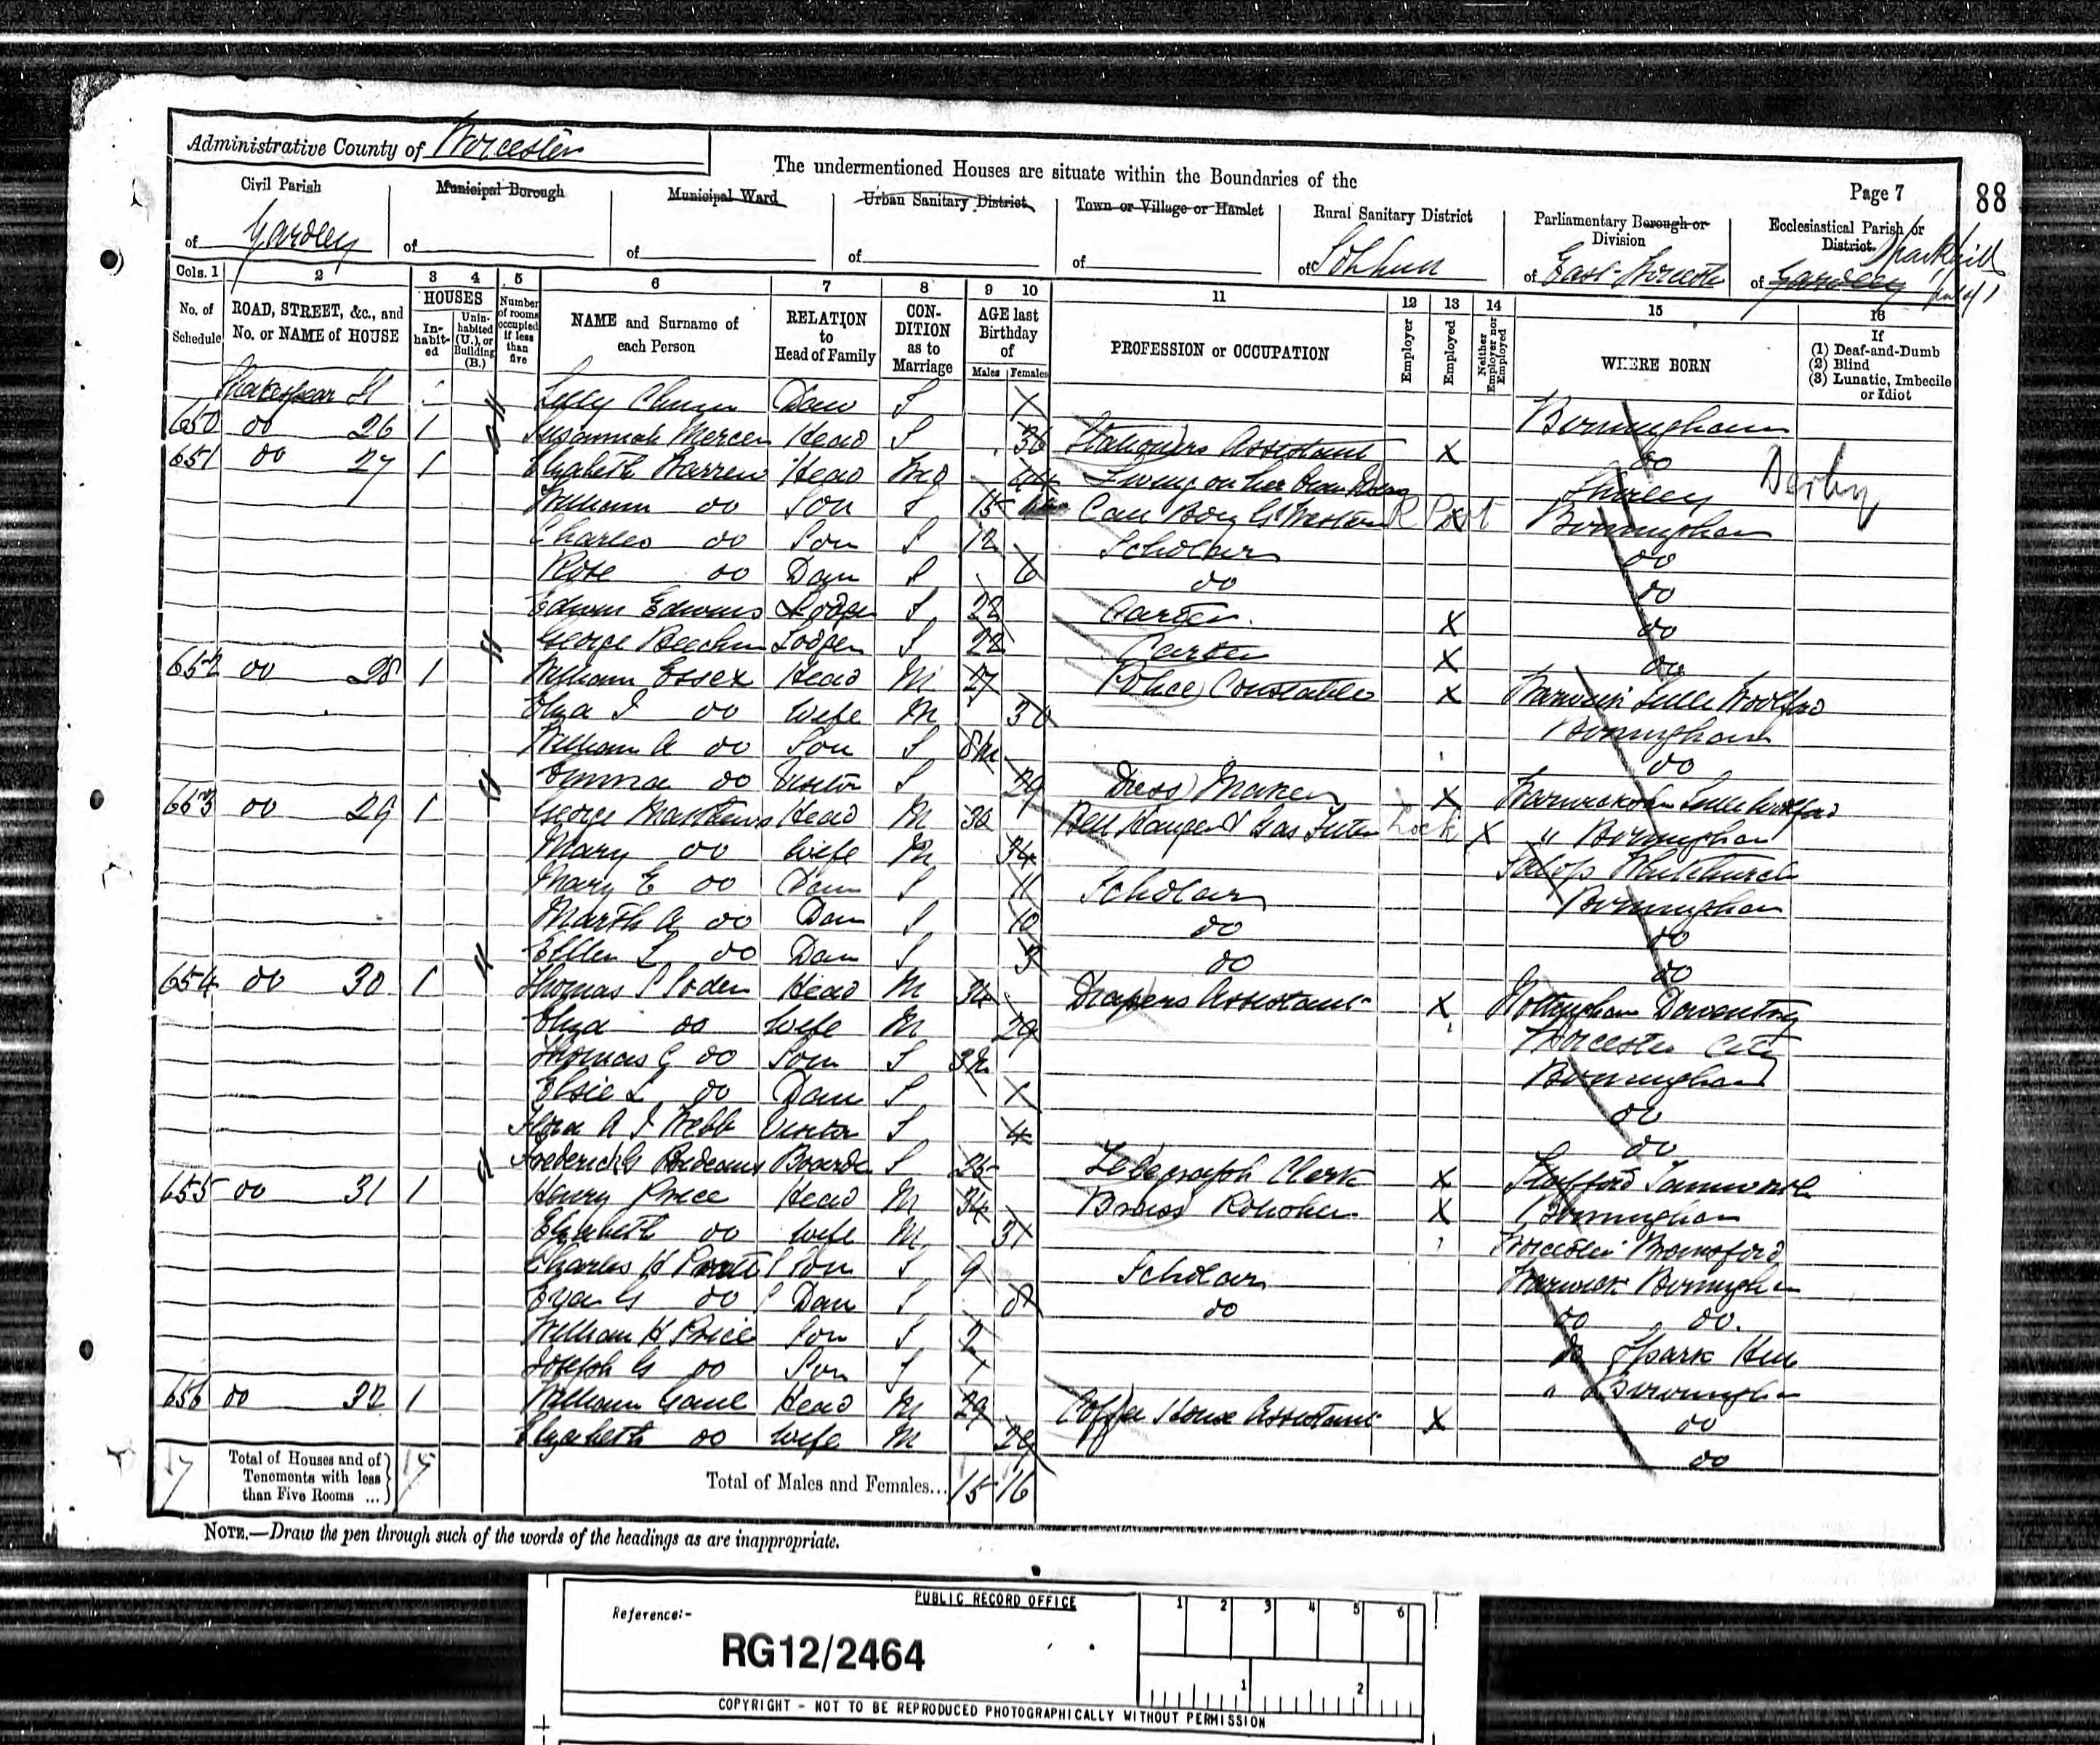 Administrative County of Worcester
The undermentioned Houses are situate within the Boundaries of the
Page 7
88
Civil Parish
Municipal Borough
Municipal Ward
Urban Sanitary District
Town or Village or Hamlet
Rural Sanitary District
Parliamentary Borough or Division
Ecclesiastical Parish or District
of Yardley
of
of
of
of
of Solihull
of East Worcester
of Yardley Sparkhill part of
Cols. 1 2 3 4 5 6 7 8 9 10 11 12 13 14 15 16
No. of Schedule
ROAD, STREET, &c., and No. or NAME of HOUSE
HOUSES
Inhabited
Uninhabited (U.), or Building (B.)
Number of rooms occupied if less than five
NAME and Surname of each Person
RELATION to Head of Family
CONDITION as to Marriage
AGE last Birthday of
Males Females
PROFESSION or OCCUPATION
Employer
Employed
Neither Employer nor Employed
WHERE BORN
If
(1) Deaf-and-Dumb
(2) Blind
(3) Lunatic, Imbecile or Idiot
Shakespear St Daur S Birmingham
650 do 26 1 Susannah Mercer Head S 36 Stationers Assistant X do
651 do 27 1 Elizabeth Warren Head Wid 44 Living on her Own Shirley Derby
William do Son S 15 Boy Gt Western X Birmingham
Charles do Son S 12 Scholar do
Rose do Daur S 6 do do
Edwin Edwins Lodger S 22 Carter X do
George Beechum Lodger S 22 Carter X do
652 do 28 1 William Essex Head M 27 Police Constable X Warwick Little Woolford
Eliza J do Wife M 30 Birmingham
William A do Son S 8m do
Emma do Visitor S 29 Dress Maker X Warwicksh Little Woolford
653 do 29 1 George Matthews Head M 32 Bell Hanger & Gas Fitter Lock X " Birmingham
Mary do Wife M 34 Salop Whitchurch
Mary E do Daur S 11 Scholar Birmingham
Marth A do Dau S 10 do do
Ellen L do Dau S 3 do do
654 do 30 1 Thomas P Soden Head M 34 Drapers Assistant X Nottingham Daventry
Eliza do Wife M 29 Worcester City
Thomas G do Son S 3 Birmingham
Elsie L do Daur S do
Flora A J Webb Visitor S 4 do
Frederick G Boarder S 25 Telegraph Clerk X Stafford Tamworth
655 do 31 1 Henry Price Head M 34 Brass Polisher X Birmingham
Elizabeth do Wife M 31 Worcester Bransford
Charles H S Son S 9 Scholar Warwick Birmingham
Eva G do S Dau S 8 do do do.
William H Price Son S 2 do Spark Hill
Joseph G do Son S 1 " Birmingham
656 do 32 1 William Head M 29 Coffee House Assistant X do
Elizabeth do Wife M 29 do
Total of Houses and of Tenements with less than Five Rooms ...
Total of Males and Females... 15 16
NOTE.—Draw the pen through such of the words of the headings as are inappropriate.
PUBLIC RECORD OFFICE
Reference:-
1 2 3 4 5 6
RG12/2464
1 2
COPYRIGHT - NOT TO BE REPRODUCED PHOTOGRAPHICALLY WITHOUT PERMISSION